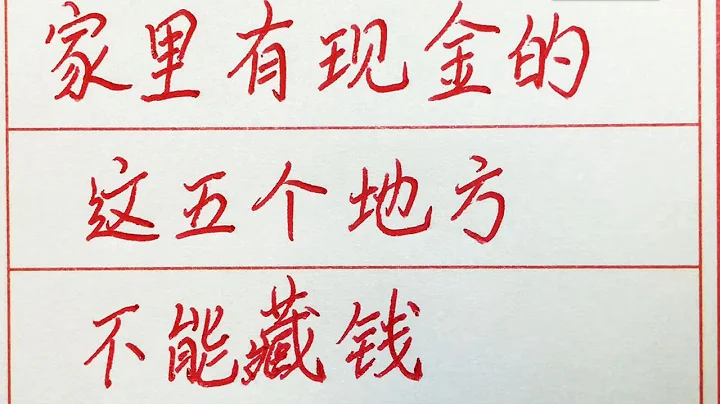 家里有现金的
这五个地方
不能藏钱